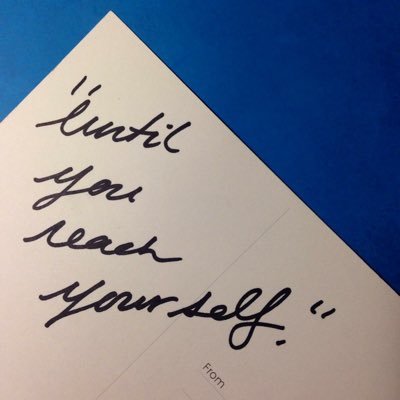 "Until
you
reach
yourself."
From